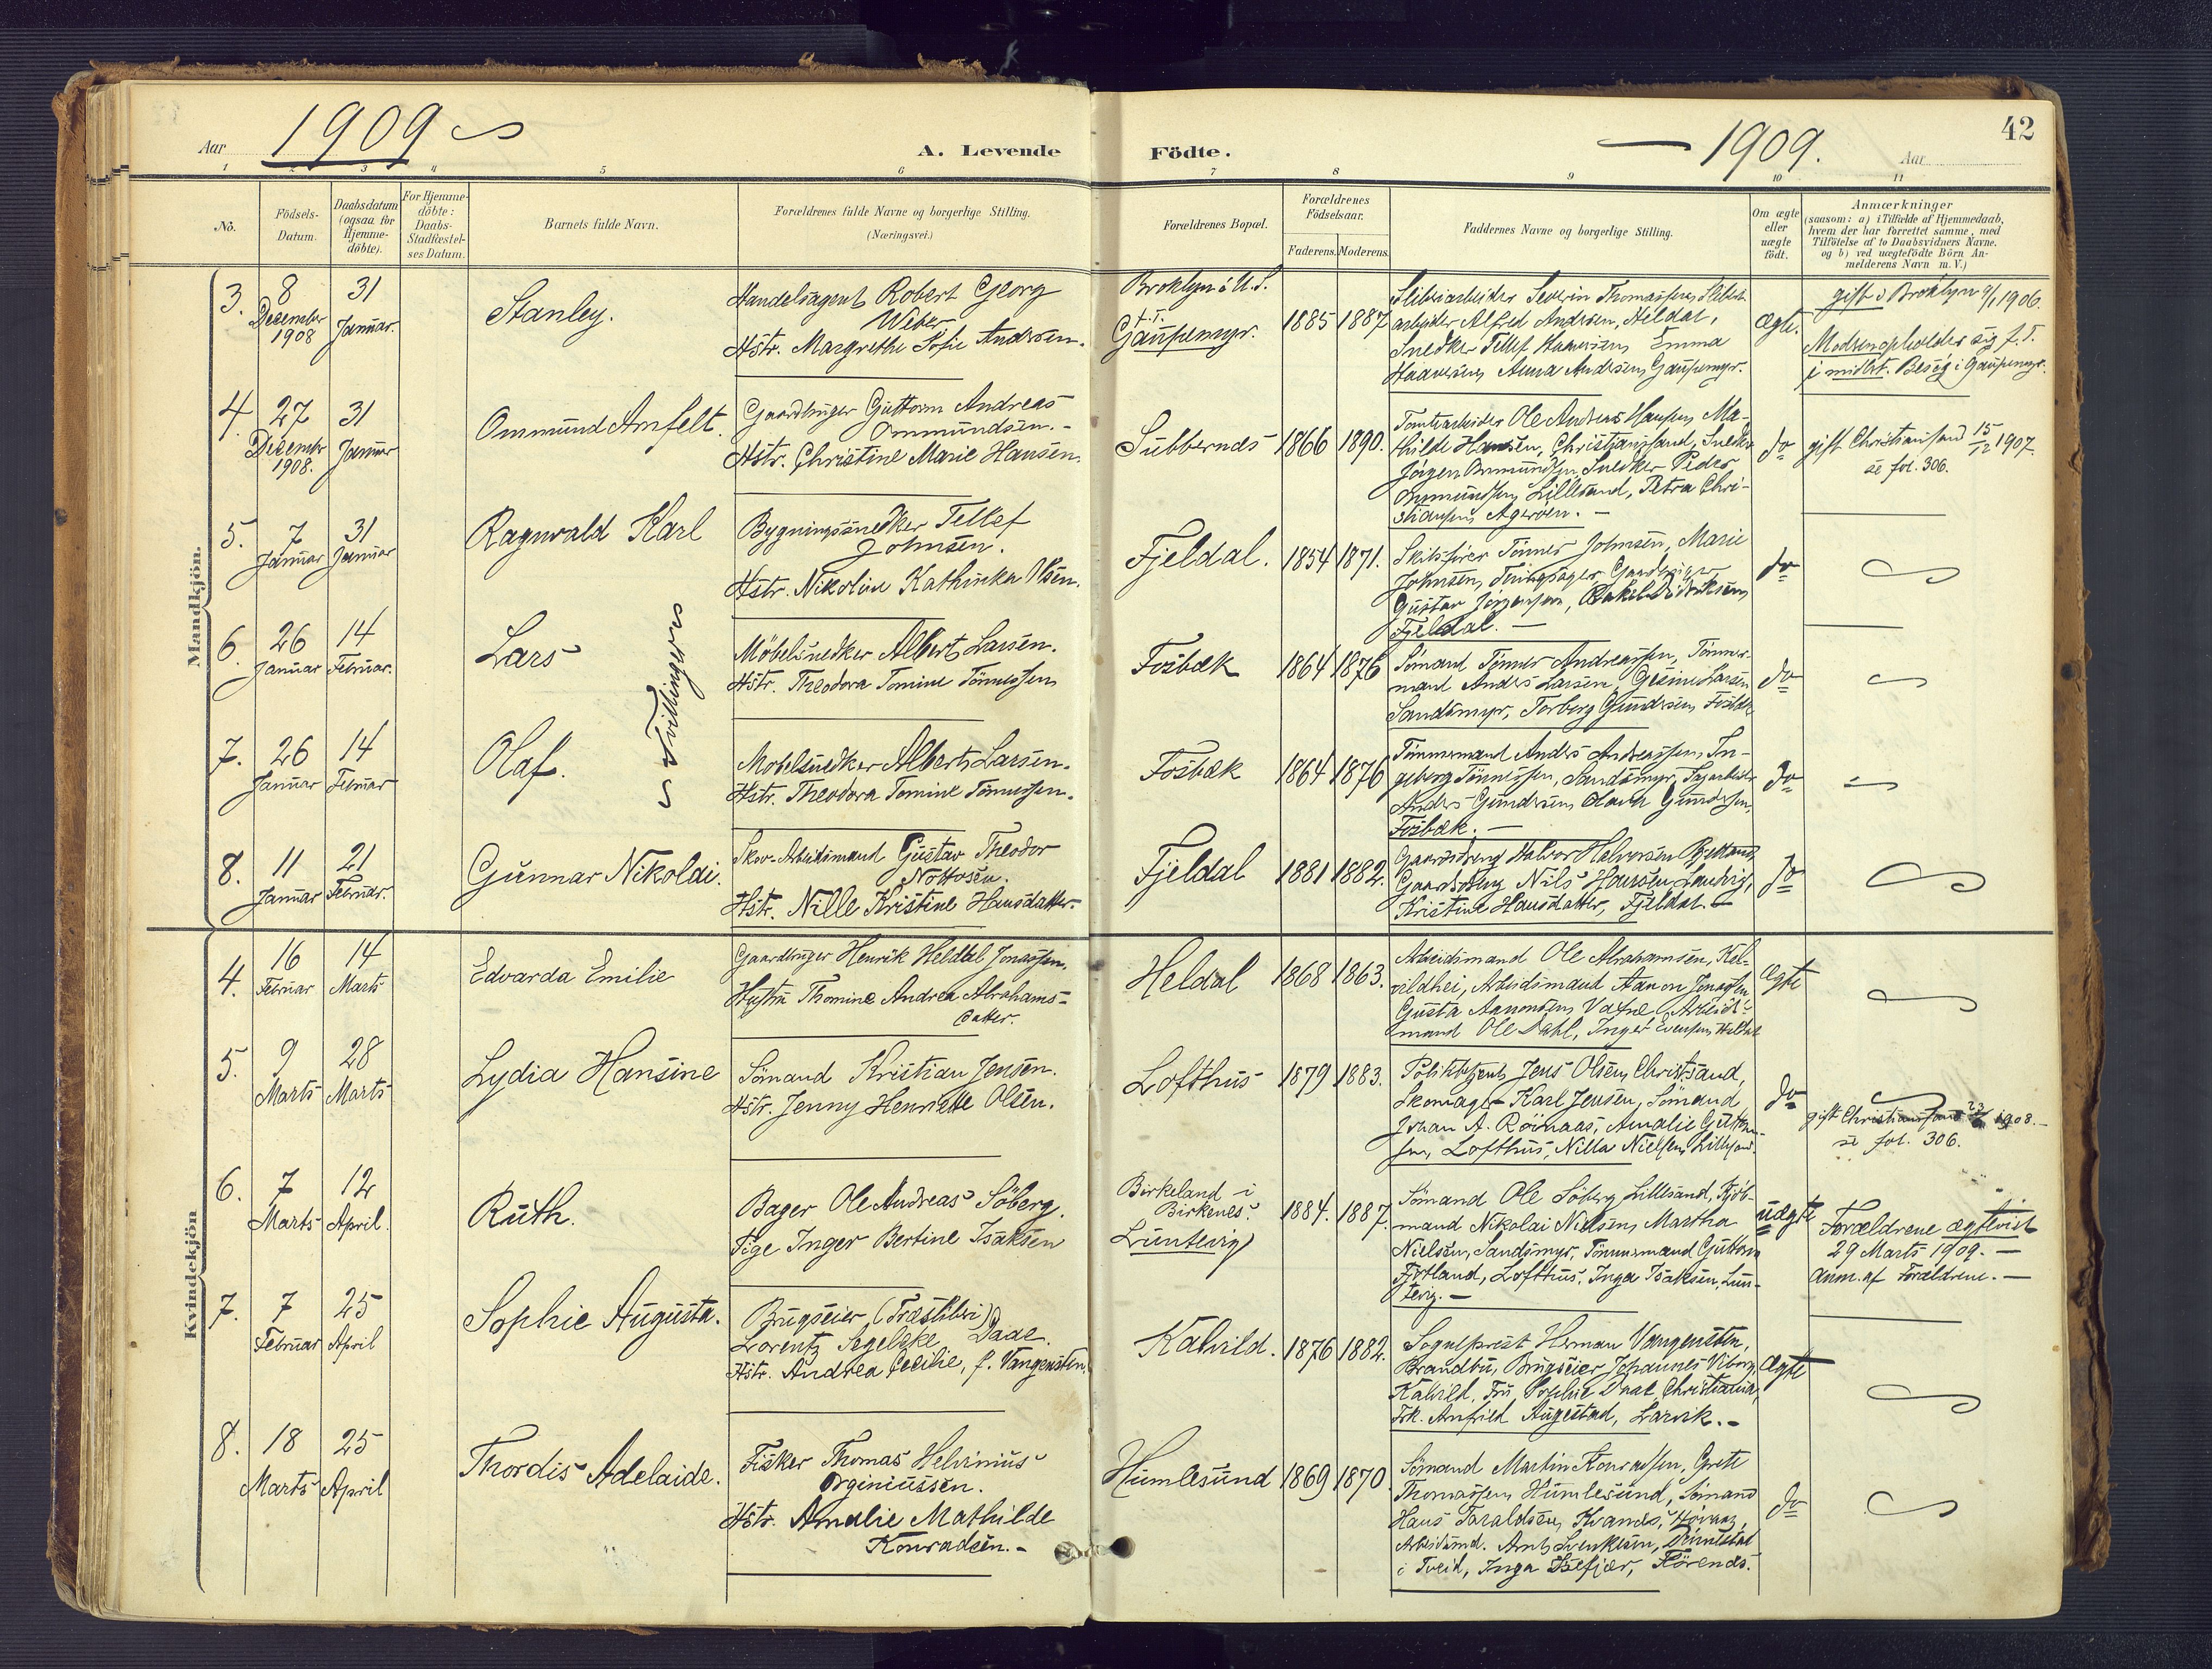 Aar 1909
A. Levende
Födte.
1909.
Aar
42
1 2 3 4 5 6 7 8 9 10 11
No.
Födsels-
Datum.
Daabsdatum
(ogsaa for
Hjemme-
döbte).
For Hjemme-
döbte:
Daabs-
Stadfæstel-
ses Datum.
Barnets fulde Navn.
Forældrenes fulde Navne og borgerlige Stilling.
(Næringsvei.)
Forældrenes Bopæl.
Forældrenes
Födselsaar.
Faderens. Moderens.
Faddernes Navne og borgerlige Stilling.
Om ægte
eller
uægte
født.
Anmærkninger
(saasom: a) i Tilfælde af Hjemmedaab,
hvem der har forrettet samme, med
Tilföielse af to Daabsvidners Navne.
og b) ved uægtefödte Börn An-
melderens Navn m. V.)
Mandkjön.
3.
8
December
1908
31
Januar.
Stanley.
Handelsagent Robert Georg
Weber
Hstr. Margrethe Sofie Andersen.
Broklyn i U.S.
f.T.
Gaupemyr.
1885 1887
Sliberiarbeider Severin Thomassen, Sliberi-
arbeider Alfred Andersen, Heldal,
Snedker Tellef Haaversen, Emma
Haaversen, Anna Andersen, Gaupemyr.
ægte.
gift i Broklyn 1906.
Moderen opholder sig f.T.
i midlert. Besøg i Gaupemyr.
4.
27
December
1908.
31
Januar
Ommund Arnfelt.
Gaardbruger Guttorm Andreas
Ommundsen.-
Hstr. Christine Marie Hansen.
Subbernes
1866 1890.
Tomtearbeider Ole Andreas Hansen, Ma-
thilde Hansen, Christiansand, Snedker
Jörgen Ommundsen, Snedker Peder
Ommundsen, Lillesand, Petra Chri-
stiansen, Ageröen. -
do
gift Christiansand 15/12 1907.
se fol. 306.
5.
7
Januar
31
Januar
Ragnvald Karl
Bygningssnedker Tellef
Johnsen.
Hstr. Nikoline Kathinka Olsen.
Fjeldal.
1854 1871.
Skibsfører Tönnes Johnsen, Marie
Johnsen, Gaardbruger
Gustav Jörgensen,
Fjeldal. -
do
6.
26
Januar
14
Februar.
Lars
Tvillinger
Möbelsnedker Albert Larsen.
Hstr. Theodora Tomine Tönnessen
Fosbæk
1864 1876
Sömand Tönnes Andreassen, Tömmer-
mand Anders Larsen, Gesine Larsen
Sandsmyr, Torborg Gundersen, Fosbæk
do
7.
26
Januar
14
Februar
Olaf.
Mobelsnedker Albert Larsen.
Hstr. Theodora Tomine Tönnessen.
Fosbæk
1864 1876
Tömmermand Anders Andreassen, In-
geborg Tönnessen, Sandsmyr, Sagarbeider
Anders Gundersen, Olava Gundersen,
Fosbæk. -
do
8.
11
Januar
21
Februar.
Gunnar Nikolai.
Skov-Arbeidsmand Gustav Theodor
Nottosen.
Hstr. Nille Kristine Hansdatter.
Fjeldal
1881 1882.
Gaardsdreng Halvor Halvorsen
Gaardsdreng Nils Hansen
Kristine Hansdatter, Fjeldal.
do
Kvindekjön
4.
16
Februar
14
Marts
Edvarda Emilie
Gaardbruger Henrik Heldal Jonassen,
Hustru Thomine Andrea Abrahams-
datter.
Heldal
1868 1863.
Arbeidsmand Ole Abrahamsen, Kal-
vildhei, Arbeidsmand Aanon Jonassen
Gusta Aanonsen, Vatne, Arbeids-
mand Ole Dahl, Inger Evensen, Heldal
Ægte
5.
9
Marts
28
Marts
Lydia Hansine
Sömand Kristian Jensen.
Hstr. Jenny Henriette Olsen.
Lofthus
1879 1883.
Politibetjent Jens Olsen, Christsand,
Skomager Karl Jensen, Sömand
Johan A. Röinaas, Amalie Guttorm-
sen, Lofthus, Nilla Nielsen, Lillesand.
do
gift Christiansand 1908.
se fol. 306.
6.
7
Marts
12
April.
Ruth.
Bager Ole Andreas Söberg.
Pige Inger Bertine Isaksen
Birkeland i
Birkenes.
Luntevig
1884. 1887.
Sömand Ole Söberg, Lillesand, Kjöb-
mand Nikolai Nielsen, Martha
Nielsen, Sandsmyr, Tömmermand Guttorm
Fjotland, Lofthus, Inga Isaksen, Lun-
tevig. -
uægte
Forældrene ægteviet
29 Marts 1909. -
Anm. af Forældrene. -
7.
7
Februar
25
April
Sophie Augusta.
Brugseier (Træsliberi)
Lorentz Segelcke Daae.
Hstr. Andrea Cecilie, f. Vangensten.
Kalvild.
1876 1882.
Sogneprest Herman Vangensten,
Brandbu, Brugseier Johannes Viborg,
Kalvild, Fru Sophie Daae, Christiania,
Frk. Anfried Augestad, Larvik. -
Ægte
8.
18
Marts
25
April
Thordis Adelaide.
Fisker Thomas Helvinius
Orginiussen.
Hstr. Amalie Mathilde
Konradsen. -
Humlesund
1869 1870.
Sömand Martin Konradsen, Grete
Thomassen, Humlesund, Sömand
Hans Taraldsen, Kvanes, Hövaag,
Arbeidsmd. Arnt Svenksen, Rinnestad
i Tveid, Inga Isefjær,
do